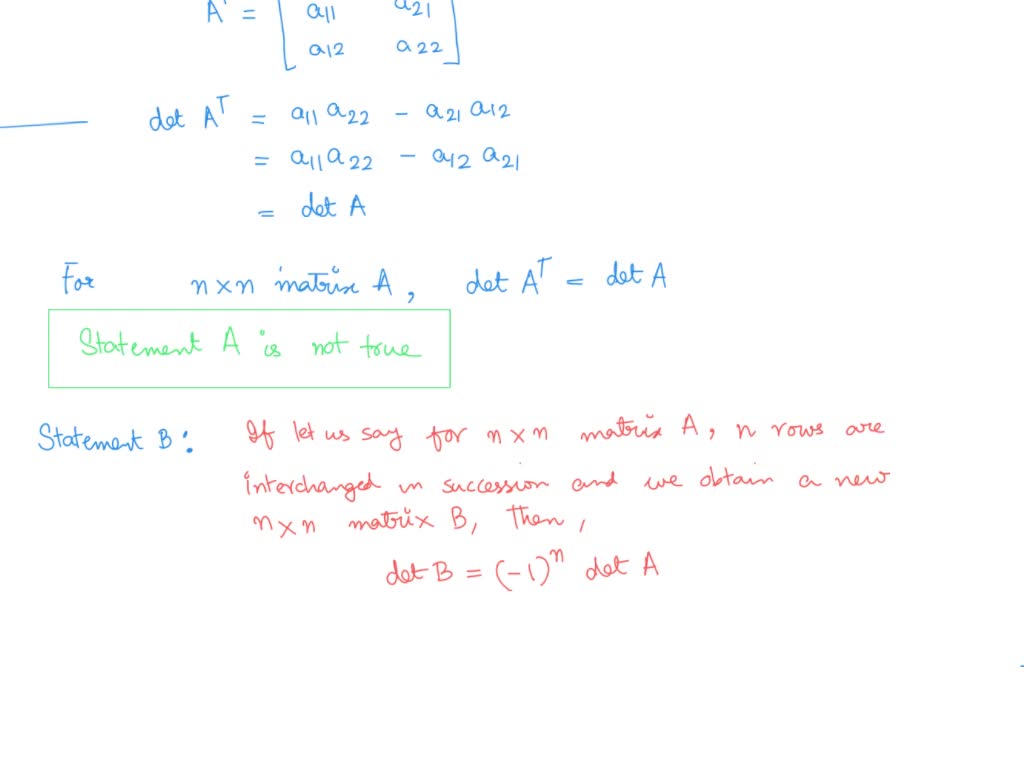 A' = [ a11 a21
a12 a22 ]
det A^T = a11 a22 - a21 a12
= a11 a22 - a12 a21
= det A
For n×n matrix A, det A^T = det A
Statement A is not true
Statement B: If let us say for n×n matrix A, n rows are
interchanged in succession and we obtain a new
n×n matrix B, then,
det B = (-1)^n det A